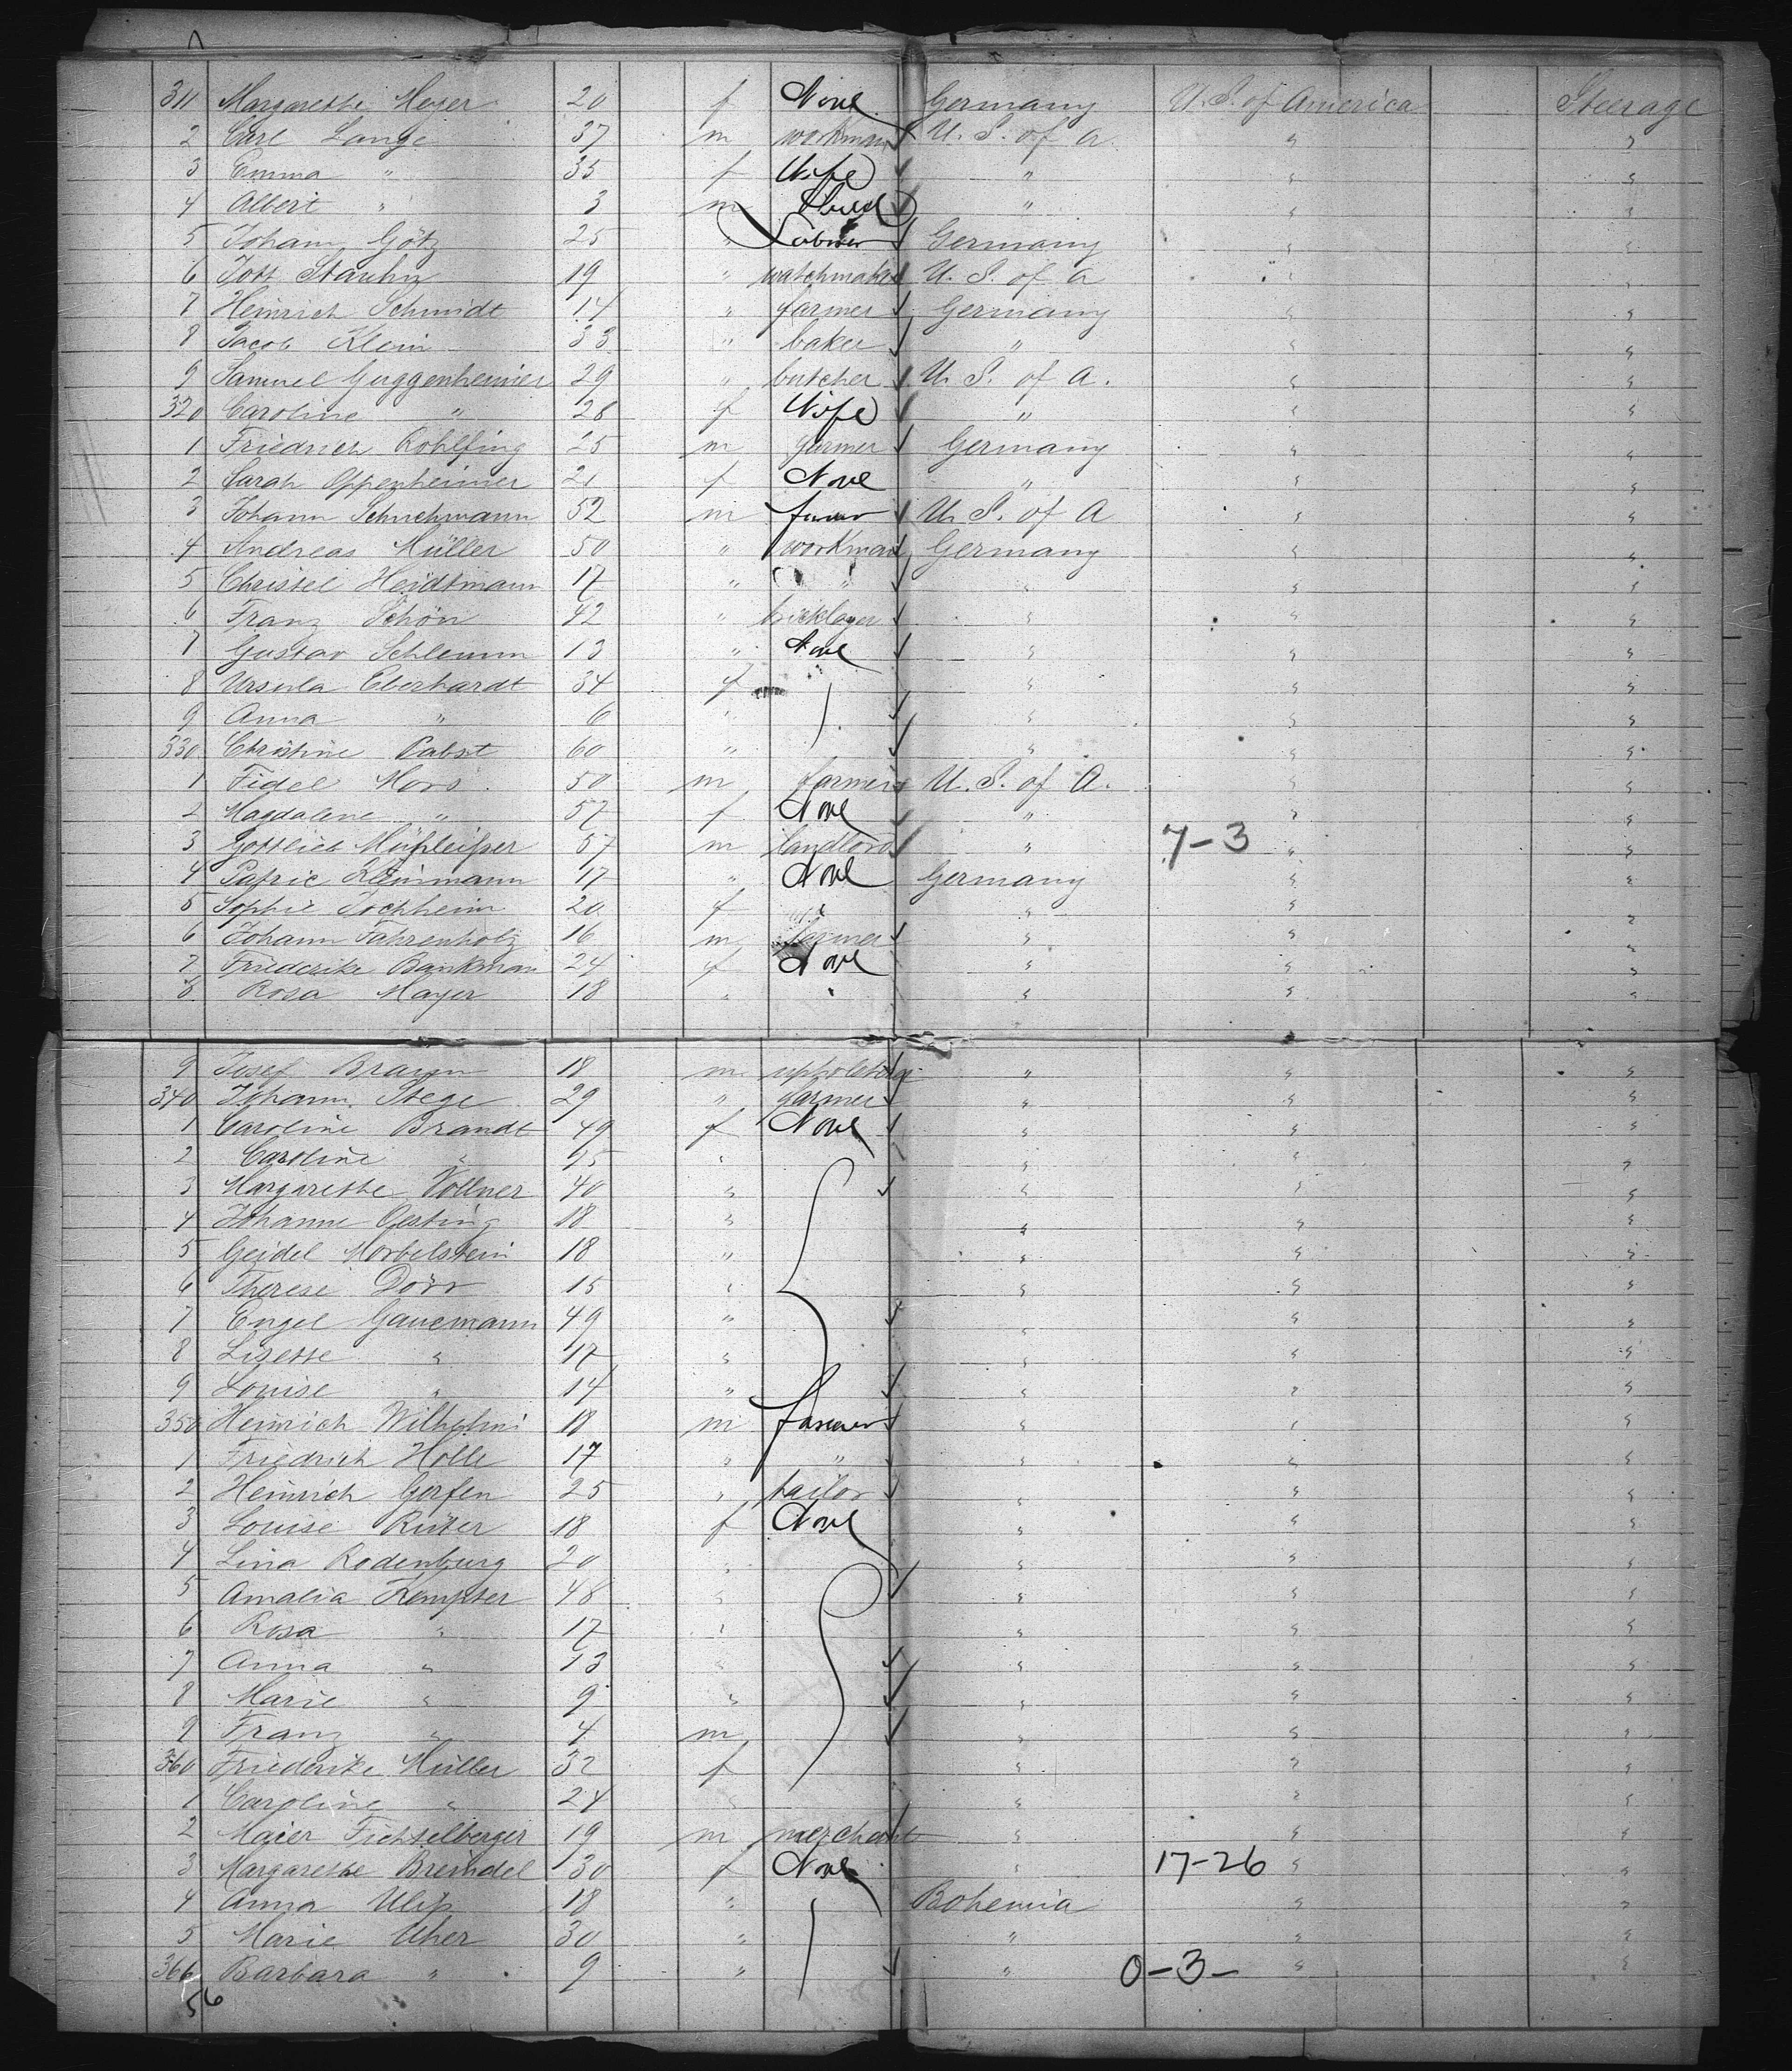 311 Margarethe Meyer 20 f None Germany U. S. of America Steerage
2 Carl Lange 37 m workman U. S. of A. " "
3 Emma " 35 f Wife " " "
4 Albert " 3 m Child " " "
5 Johann Götz 25 " Laborer Germany " "
6 19 " watchmaker U. S. of A " "
7 Heinrich Schmidt 14 " farmer Germany " "
8 Jacob Klein 33 " baker " " "
9 Samuel Guggenheimer 29 " butcher U. S. of A. " "
320 Caroline " 28 f Wife " " "
1 Friedrich Rohlfing 25 m farmer Germany " "
2 Sarah Oppenheimer 21 f None " " "
3 Johann Schuchmann 52 m farmer U. S. of A " "
4 Andreas Müller 50 " workman Germany " "
5 Christel Heidtmann 17 " " " " "
6 Franz Schön 42 " bricklayer " " "
7 Gustav Schlemm 13 " None " " "
8 Ursula Eberhardt 34 f " " "
9 Anna " 6 " " " "
330 Christine Pabst 60 " " " "
1 Fidel Mors 50 m farmer U. S. of A. " "
2 Magdalene " 57 f None " " "
3 Gottlieb 57 m landlord " 7-3 " "
4 Patric Kleinmann 17 " None Germany " "
5 Sophie Jochheim 20 f " " "
6 Johann Fahrenholz 16 m farmer " " "
7 Friederike Bankman 24 f None " " "
8 Rosa Mayer 18 " " " "
9 Josef Braun 18 m upholsterer " " "
340 Johann Stege 29 " farmer " " "
1 Caroline Brandt 49 f None " " "
2 Caroline " 15 " " " "
3 Margarethe Vollmer 40 " " " "
4 Johanne Oesting 18 " " " "
5 Geidel Morbelstein 18 " " " "
6 Therese Dörr 15 " " " "
7 Engel Gausmann 49 " " " "
8 Lisette " 17 " " " "
9 Louise " 14 " " " "
350 Heinrich Wilhelmi 18 m farmer " " "
1 Friedrich Holle 17 " " " " "
2 Heinrich Gerfen 25 " tailor " " "
3 Louise Rüter 18 f None " " "
4 Lina Rodenburg 20 " " " "
5 Amalia Kempter 48 " " " "
6 Rosa " 17 " " " "
7 Anna " 13 " " " "
8 Marie " 9 " " " "
9 Franz " 4 m " " "
360 Friederike Müller 32 f " " "
1 Caroline " 24 " " " "
2 Maier Fichtelberger 19 m merchant " " "
3 Margarethe Breindel 30 f None " 17-26 " "
4 Anna 18 " Bohemia " "
5 Marie Uher 30 " " " "
366 Barbara " 9 " " 0-3- " "
56